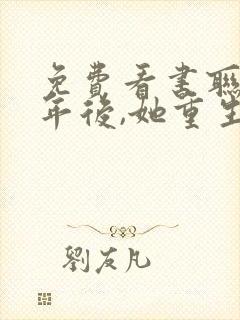 免费看書聯
年後,她重生
劉友凡